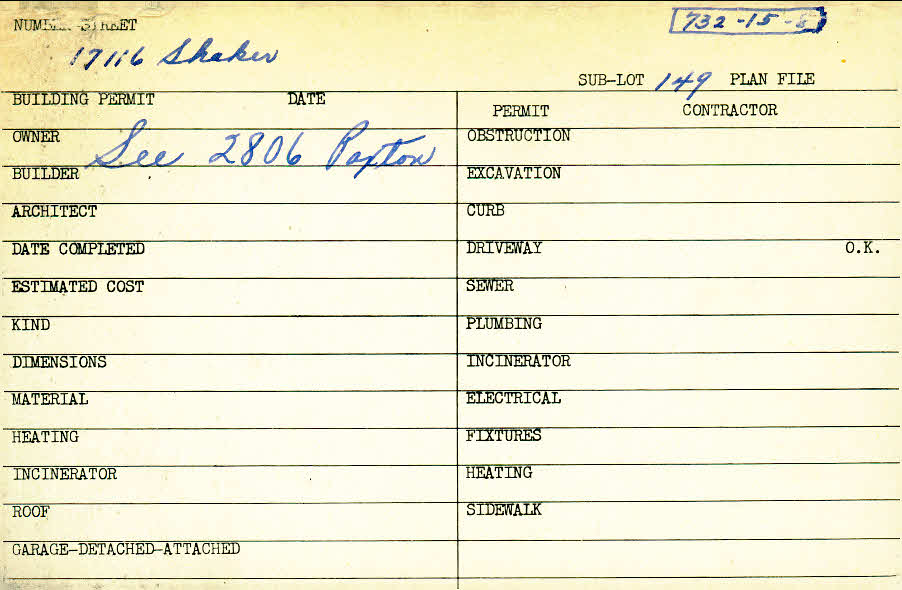 NUMBER STREET
732-15-8
17116 Shaker
SUB-LOT 149 PLAN FILE
BUILDING PERMIT DATE
PERMIT CONTRACTOR
OWNER
See 2806 Paxton
OBSTRUCTION
BUILDER
EXCAVATION
ARCHITECT
CURB
DATE COMPLETED
DRIVEWAY O.K.
ESTIMATED COST
SEWER
KIND
PLUMBING
DIMENSIONS
INCINERATOR
MATERIAL
ELECTRICAL
HEATING
FIXTURES
INCINERATOR
HEATING
ROOF
SIDEWALK
GARAGE-DETACHED-ATTACHED